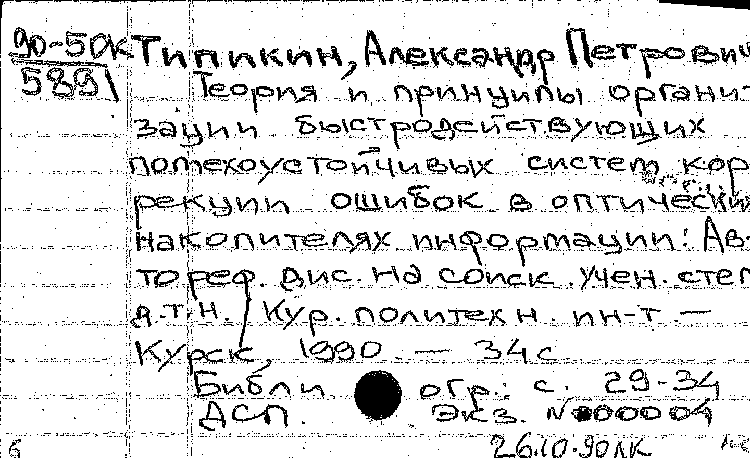 90-50К Типикин, Александр Петрович
5891 Теория и принципы органи-
зации быстродействующих
помехоустойчивых систем кор-
рекции ошибок в оптических
накопителях информации: Ав-
тореф. дис. на соиск. учен. степ.
д.т.н. / Кур. политехн. ин-т —
Курск, 1990. — 34 с
Библиогр.: с. 29-34
ДСП. Экз. №000004
26.10.90ЛК
6